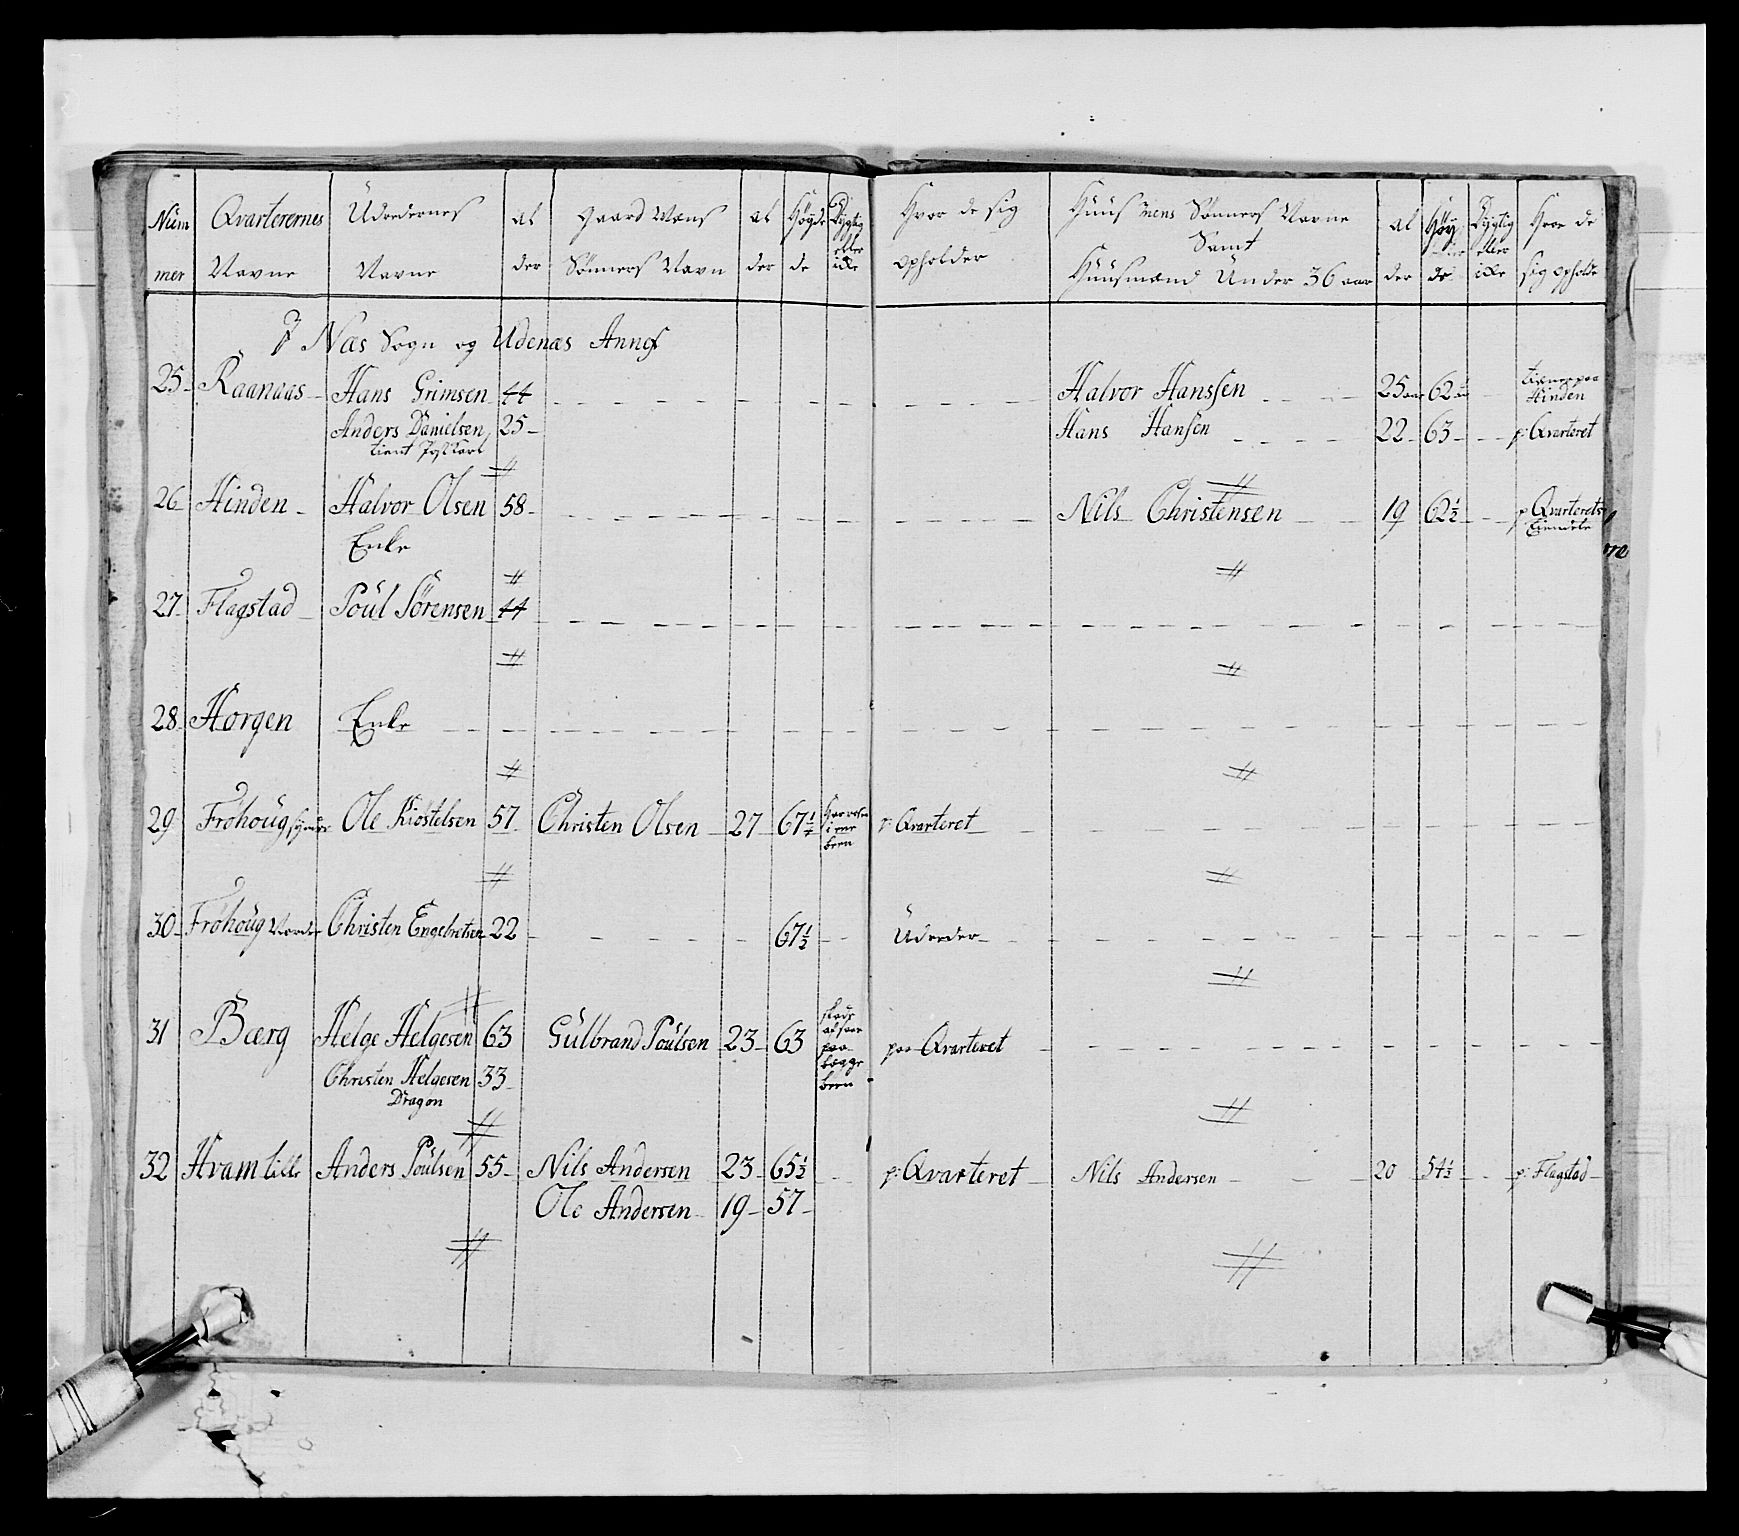 Num
mer
Qvarterernes
Navne
Udredernes
Navne
al
der
Gaard Mæns
Sønners Navn
al
der
Høyde
de
Dygtig
eller
ikke
Hvor de sig
opholder
Huus mens Sønners Navne
Samt
Huusmænd Under 36 aar
al
der
Høy
de
Dygtig
eller
ikke
Hvor de
sig opholde
I Næs Sogn og Udenæs Annex
25 Raanaas Hans Grimsen 44 Halvor Hanssen 25 aar 62 Hinden
Anders Danielsen 25 Hans Hansen 22 63 p: Qvarteret
tient
26 Hinden Halvor Olsen 58 Nils Christensen 19 62½ p Qvarterets
Enke Eiendele
27 Flagstad Poul Sørensen 44
28 Horgen Enke
29 Frohoug Ole Kiöstelsen 57 Christen Olsen 27 67½ p: Qvarteret
been
30 Frohoug Nordre Christen Engebretsen 22 67½ Udreder
31 Bærg Helge Helgesen 63 Gulbrand Poulsen 23 63 skade paa begge been paa Qvarteret
Christen Helgesen 33
Dragon
32 Hvam lille Anders Poulsen 55 Nils Andersen 23 65½ p: Qvarteret Nils Andersen 20 54½ p: Flagstad
Ole Andersen 19 57